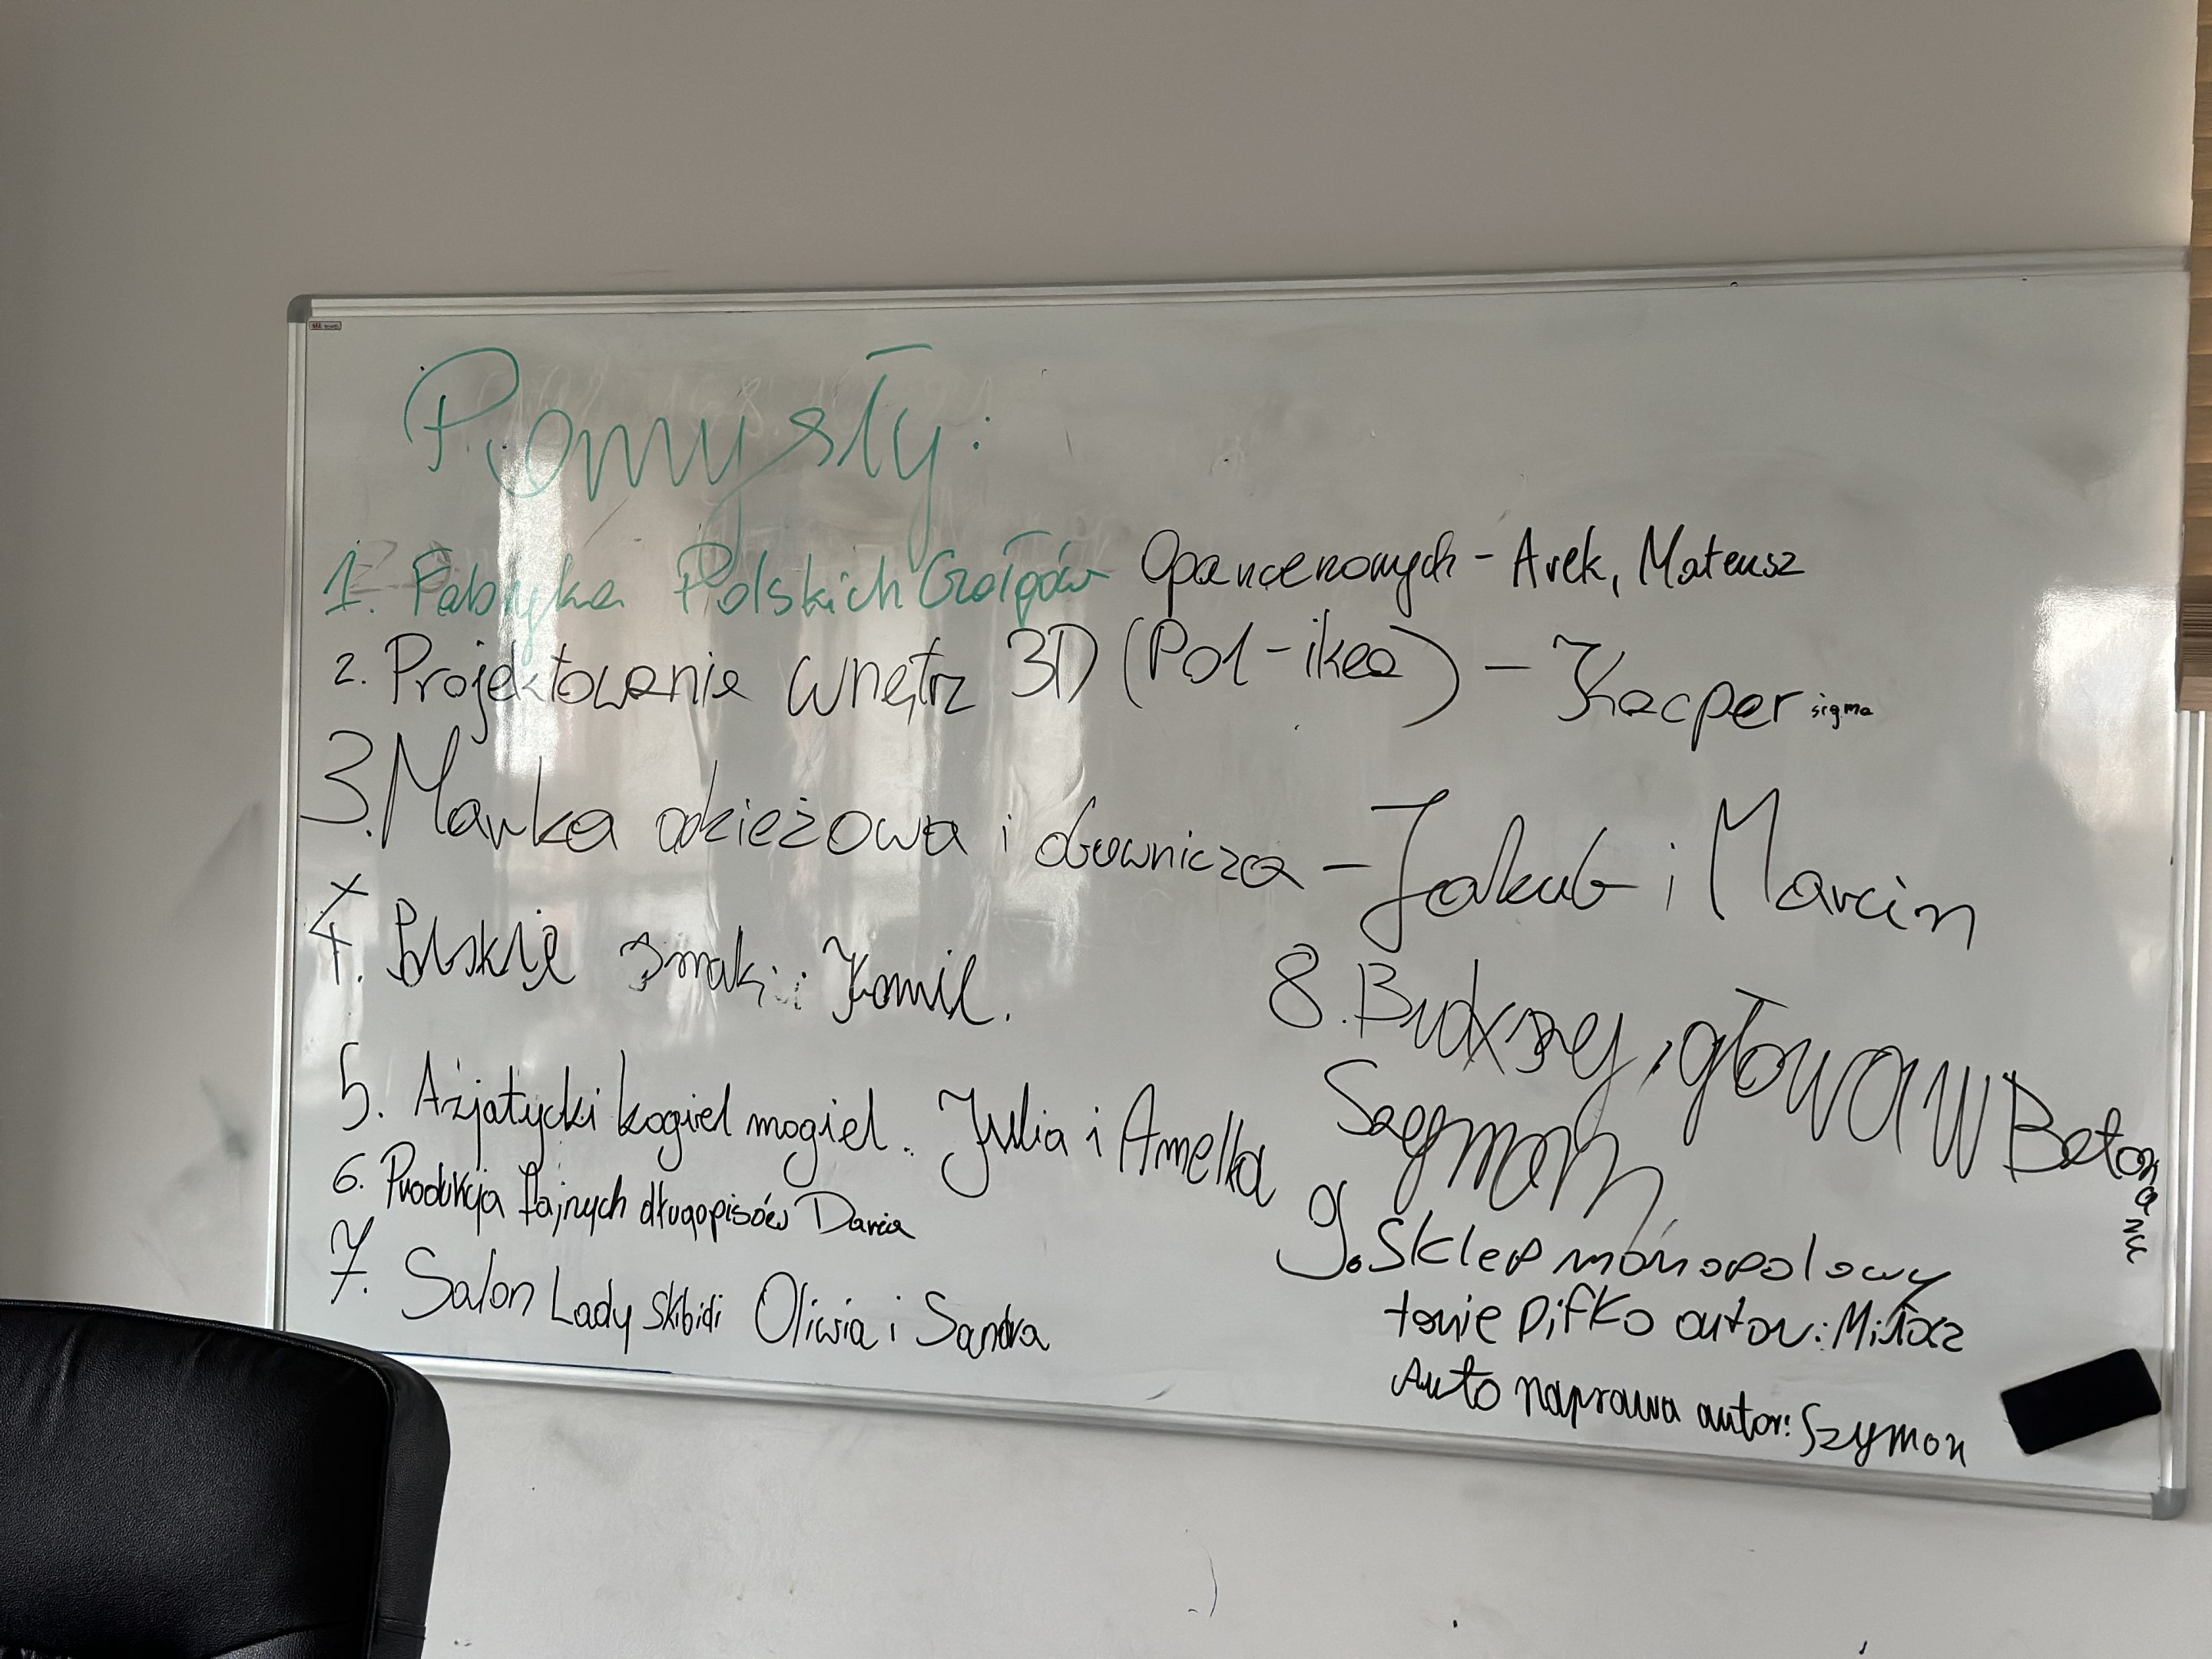 Pomysły:
1. Fabryka Polskich Gołębów Opancerzonych - Arek, Mateusz
2. Projektowanie wnętrz 3D (Pol-ikea) - Kacper sigma
3. Marka odzieżowa i obuwnicza - Jakub i Marcin
4. Polskie Smaki Kamil.
5. Azjatycki kogiel mogiel. Julia i Amelka
6. Produkcja fajnych długopisów Daria
7. Salon Lady Skibidi Oliwia i Sandra
8. głowa w Beton
Szymon
9. Sklep monopolowy
tanie Pifko autor: Miłosz
Auto naprawa autor: Szymon